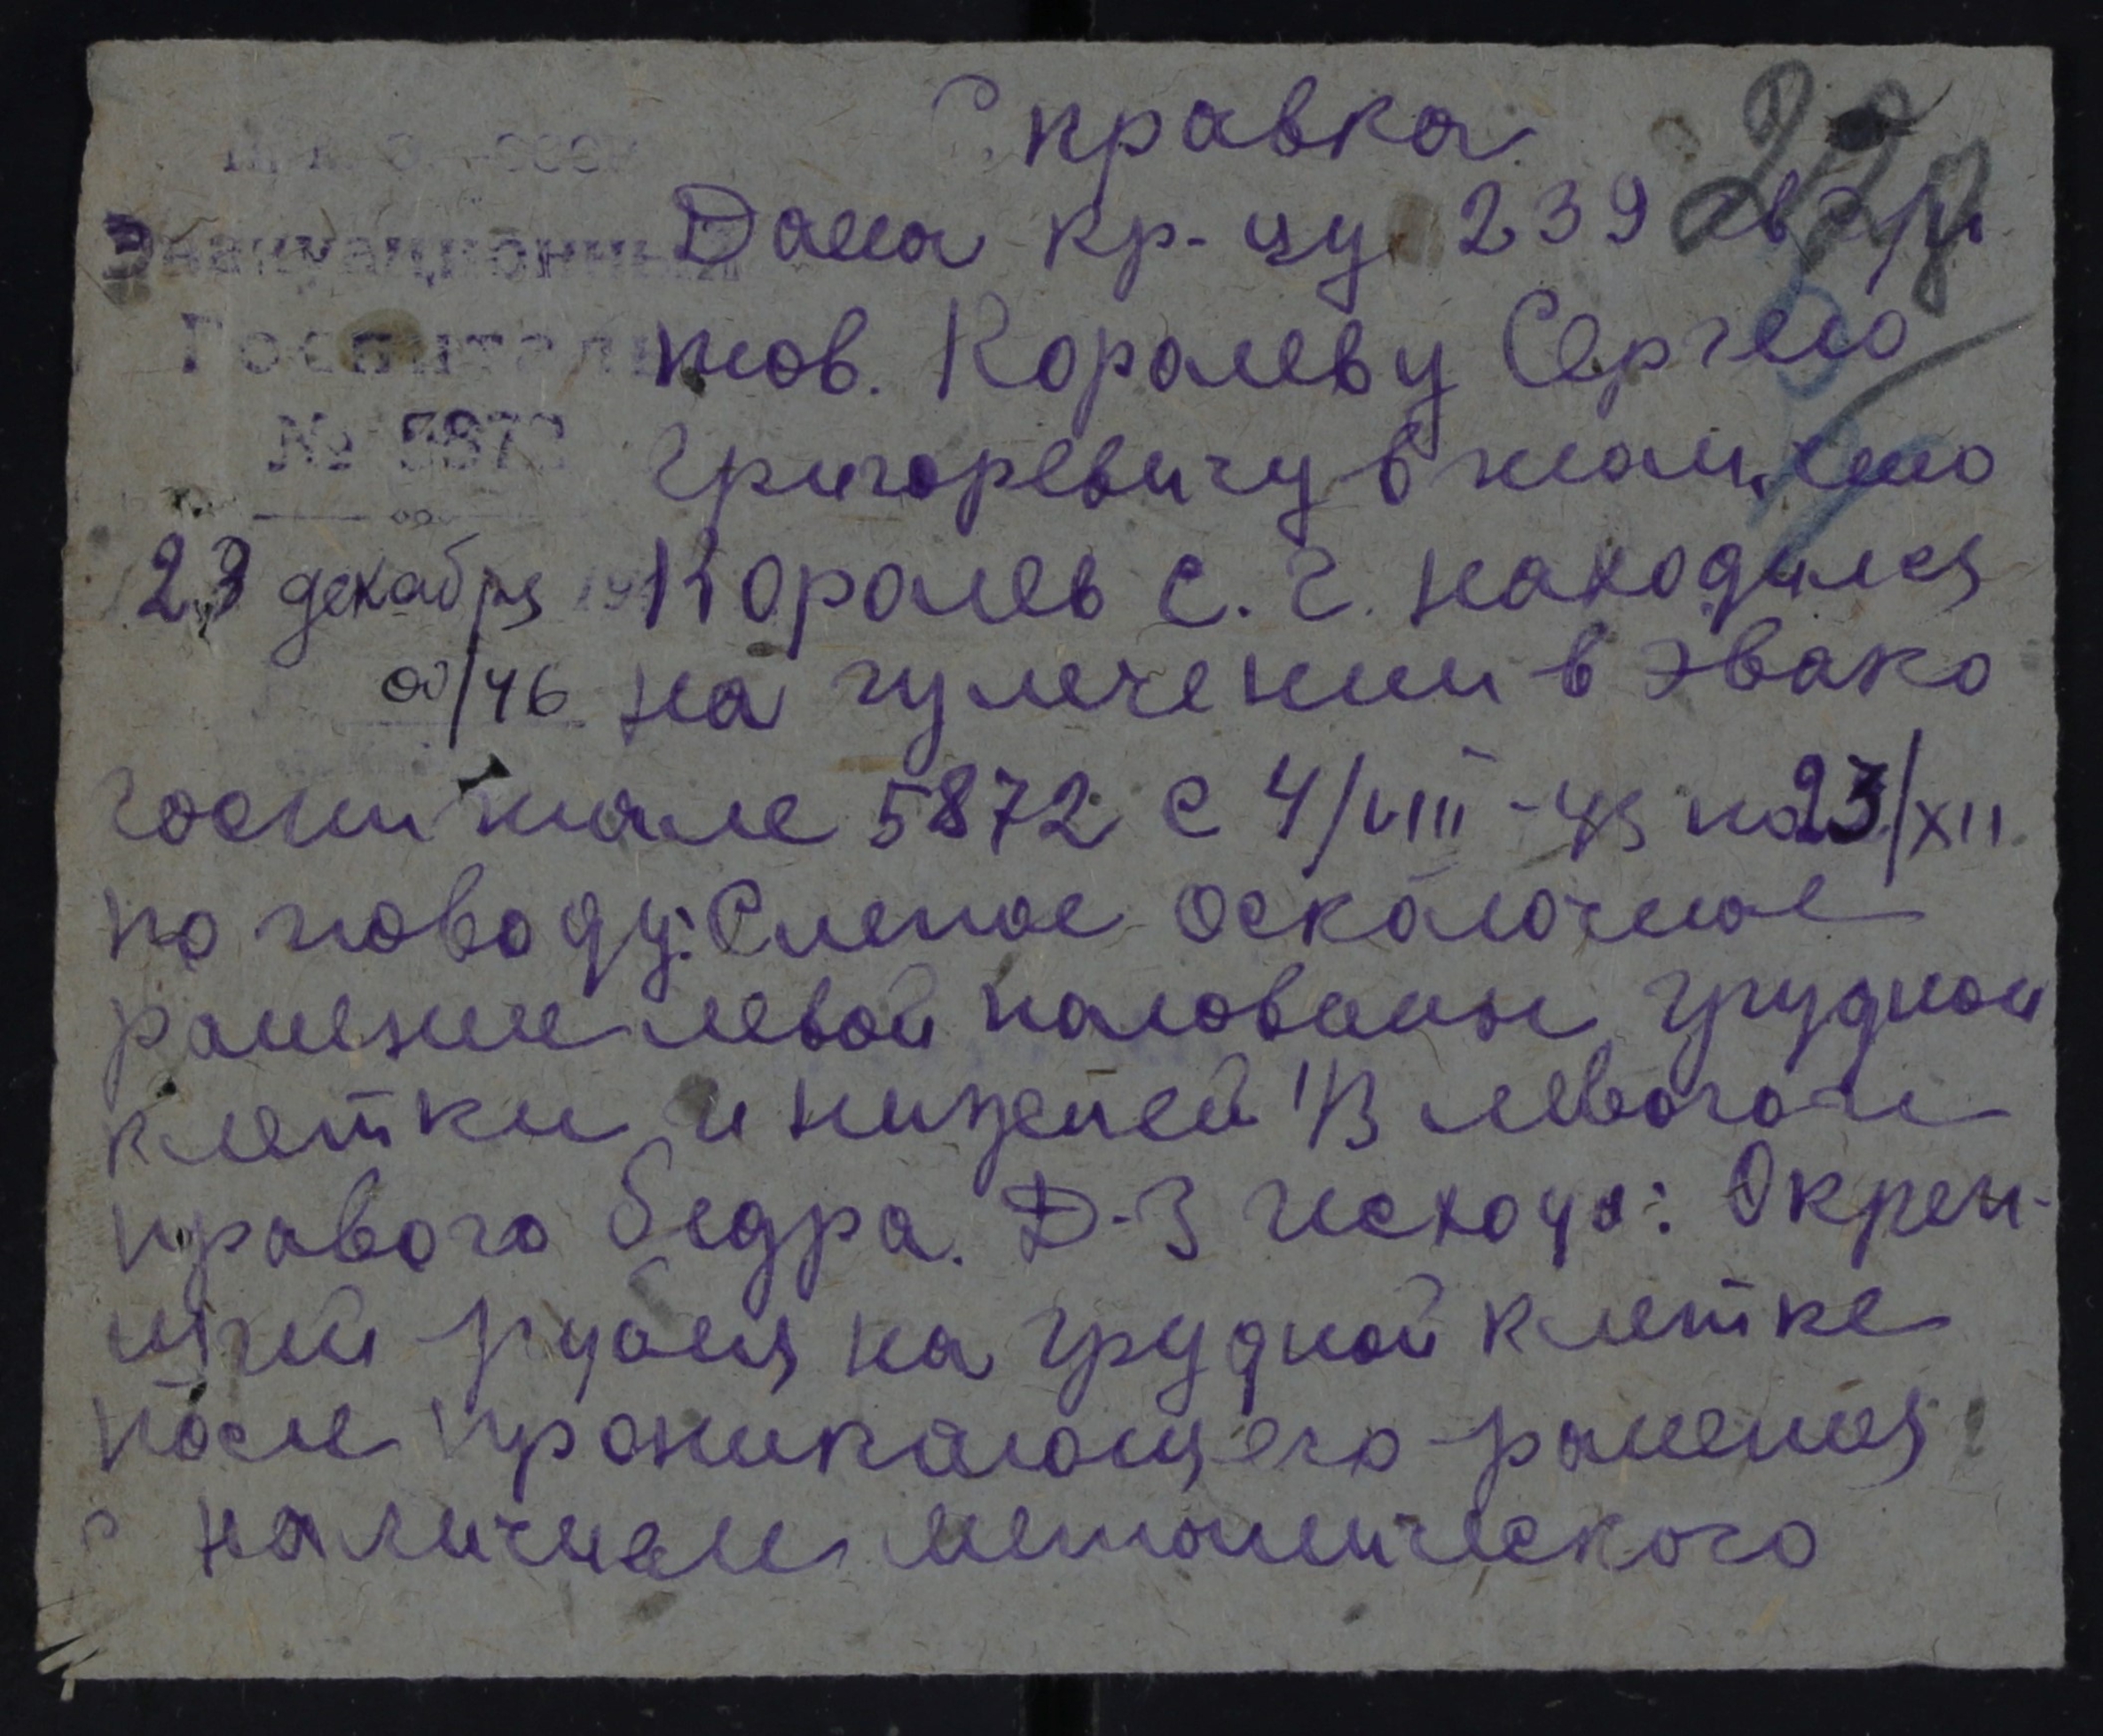 Справка
Эвакуационный
Госпиталь
№ 5872
23 декабря 19
00/46
Дана кр-цу 239
тов. Королеву Сергею
Григоревичу в том, что
Королев С. Г. находился
на излечении в эвако
госпитале 5872 с 4/VIII-43 по 23/XII
по поводу: Слепое осколочное
ранение левой половины грудной
клетки и нижней 1/3 левого и
правого бедра. Д-З исхода: Окреп-
ший рубец на грудной клетке
после проникающего ранения
с наличием металического